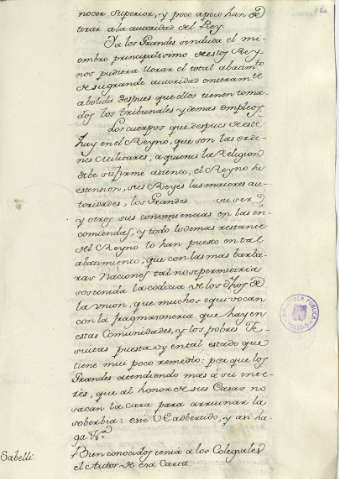 nocer superior, y poco aprecio han de
tocar a la autoridad del Rey.
Ya los Grandes siendo el mi-
embro principalisimo de estos Rey-
nos pudiera llorar el total abatimto
de su grande autoridad enteramte
abolida despues que ellos tienen toma-
dos los tribunales y demas empleos
Los cuerpos que despues de este
hay en el Reyno, que son las orde-
nes Militares, a quienes la Religion
debe su firme asiento, el Reyno su
estension, sus Reyes las maiores au-
toridades, los Grandes su ser
y otros sus conveniencias en las en-
comiendas, y todo lo demas restante
del Reyno lo han puesto en tal
abatimiento, que con las mas barba-
ras Naciones tal no se permitiria
sostenida la codicia de los Hijos de
la union, que muchos equivocan
con la fragmasoneria que hay en
estas Comunidades, y los pobres Je-
suitas puesta, y en tal estado que
tiene mui poco remedio: por que los
Grandes atendiendo mas a su inte-
rés, que al honor de sus Casas no
sacan la cara para arruinar la
soberbia:
ga
Bien conocidos tenia a los Colegiales
el Autor de esa Carta
Sabelli